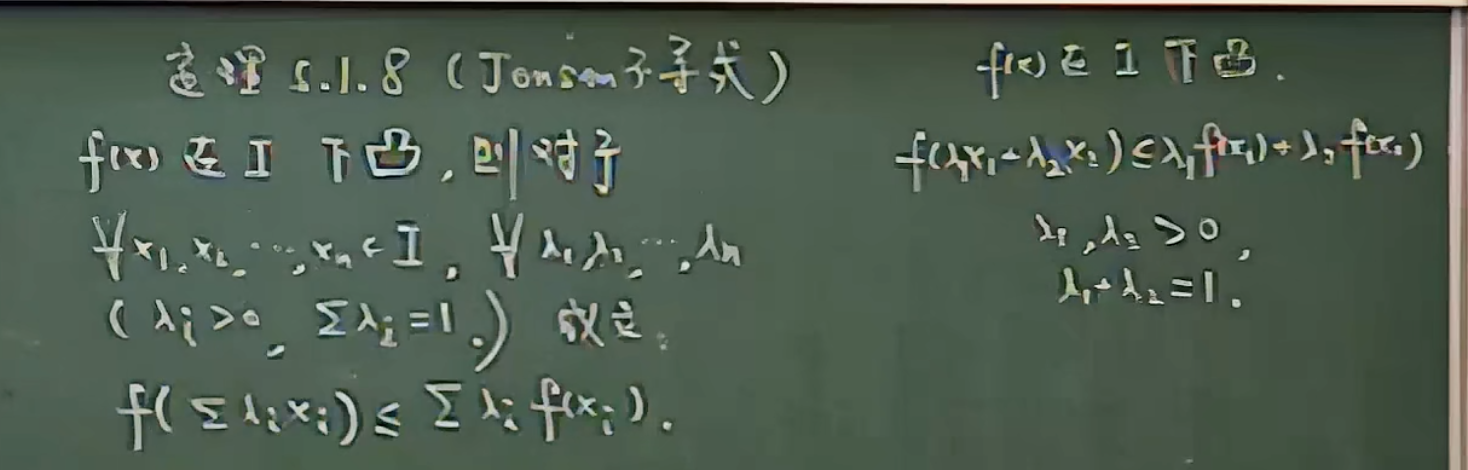 定理 5.1.8 (Jensen 不等式)
f(x) 在 I 下凸, 则对于
∀x₁, x₂, …, xₙ ∈ I, ∀ λ₁, λ₂, …, λₙ
( λᵢ>0, Σλᵢ=1.) 成立.
f( Σ λᵢxᵢ) ≤ Σ λᵢ f(xᵢ).
f(x) 在 I 下凸.
f(λ₁x₁+λ₂x₂) ≤ λ₁f(x₁)+λ₂f(x₂)
λ₁, λ₂ > 0,
λ₁+λ₂=1.